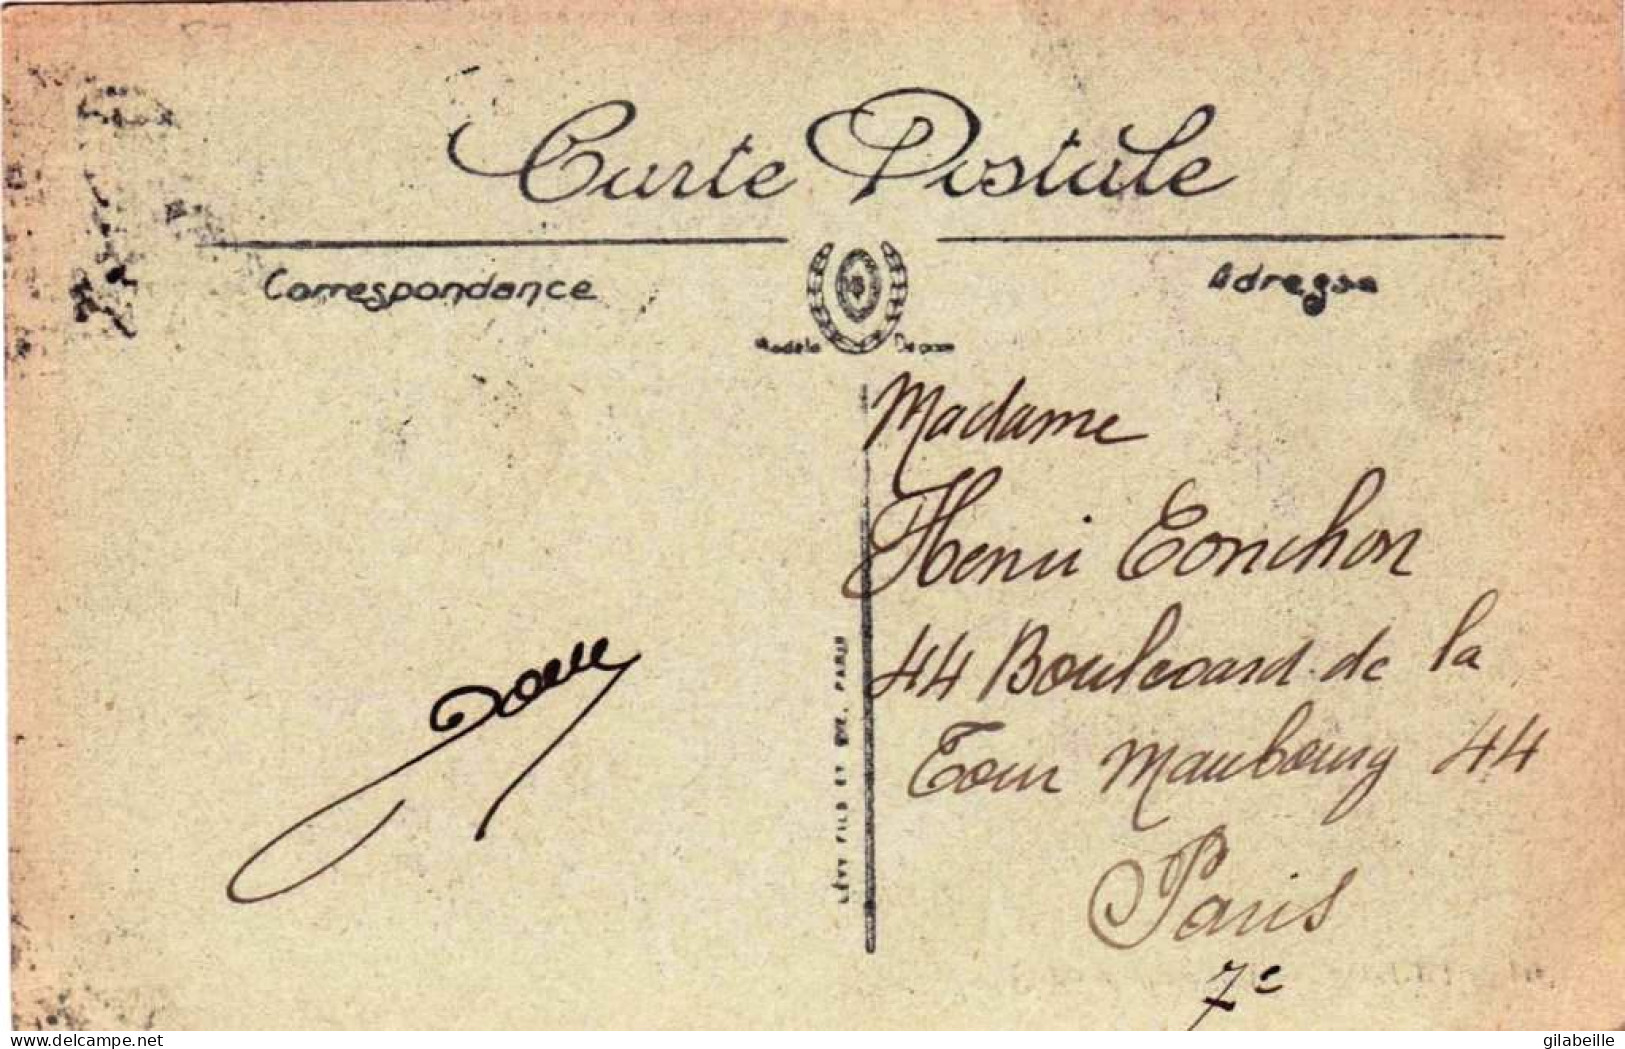 Carte Postale
Correspondance
Adresse
Modèle
LÉVY FILS ET CIE, PARIS
Madame
Henri Conchon
44 Boulevard de la
Tour Maubourg 44
Paris
7e
www.delcampe.net
gilabeille